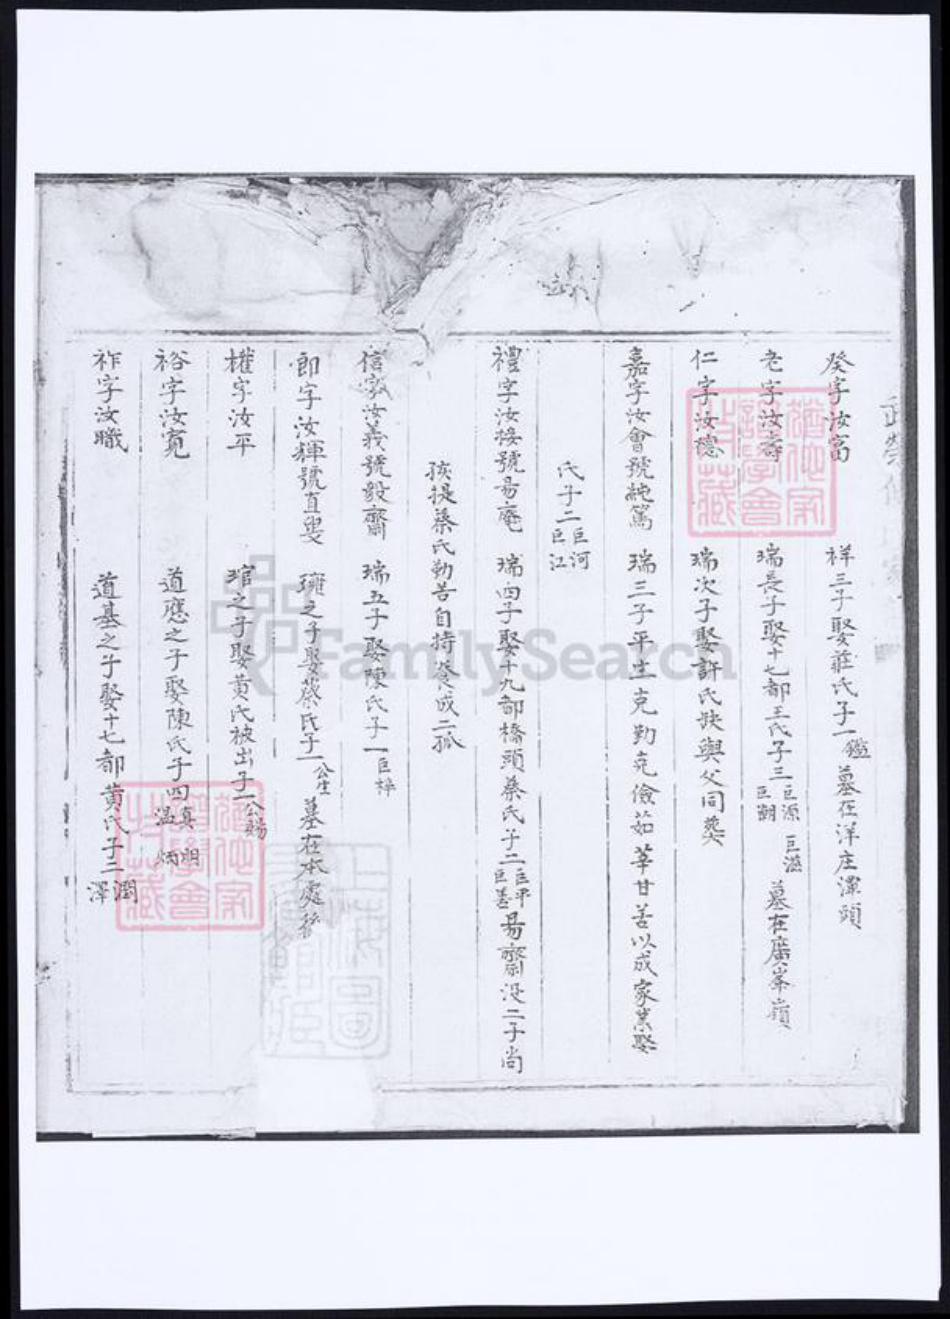 癸字汝畜 祥三子娶莊氏子一鑑墓在洋庄潭頭
老字汝壽 瑞長子娶十七都王氏子三巨源巨朝巨滋墓在廣峯嶺
仁字汝德 瑞次子娶許氏扶與父同葬
嘉字汝會號純篤 瑞三子平生克勤克儉茹莘甘苦以成家業娶
氏子二巨河巨江
禮字汝接號易庵 瑞四子娶十九都橋頭蔡氏子二巨平巨善易齋沒二子尚
孩提蔡氏勤苦自持養成二孤
信字汝義號毅齋 瑞五子娶陳氏子一巨梓
郎字汝輝號直叟 璀之子娶蔡氏子一公生墓在本處後
權字汝平 琯之子娶黃氏被出子一公賜
裕字汝寬 道應之子娶陳氏子四真明温炳
祚字汝職 道基之子娶十七都黃氏子二潤澤
FamilySearch